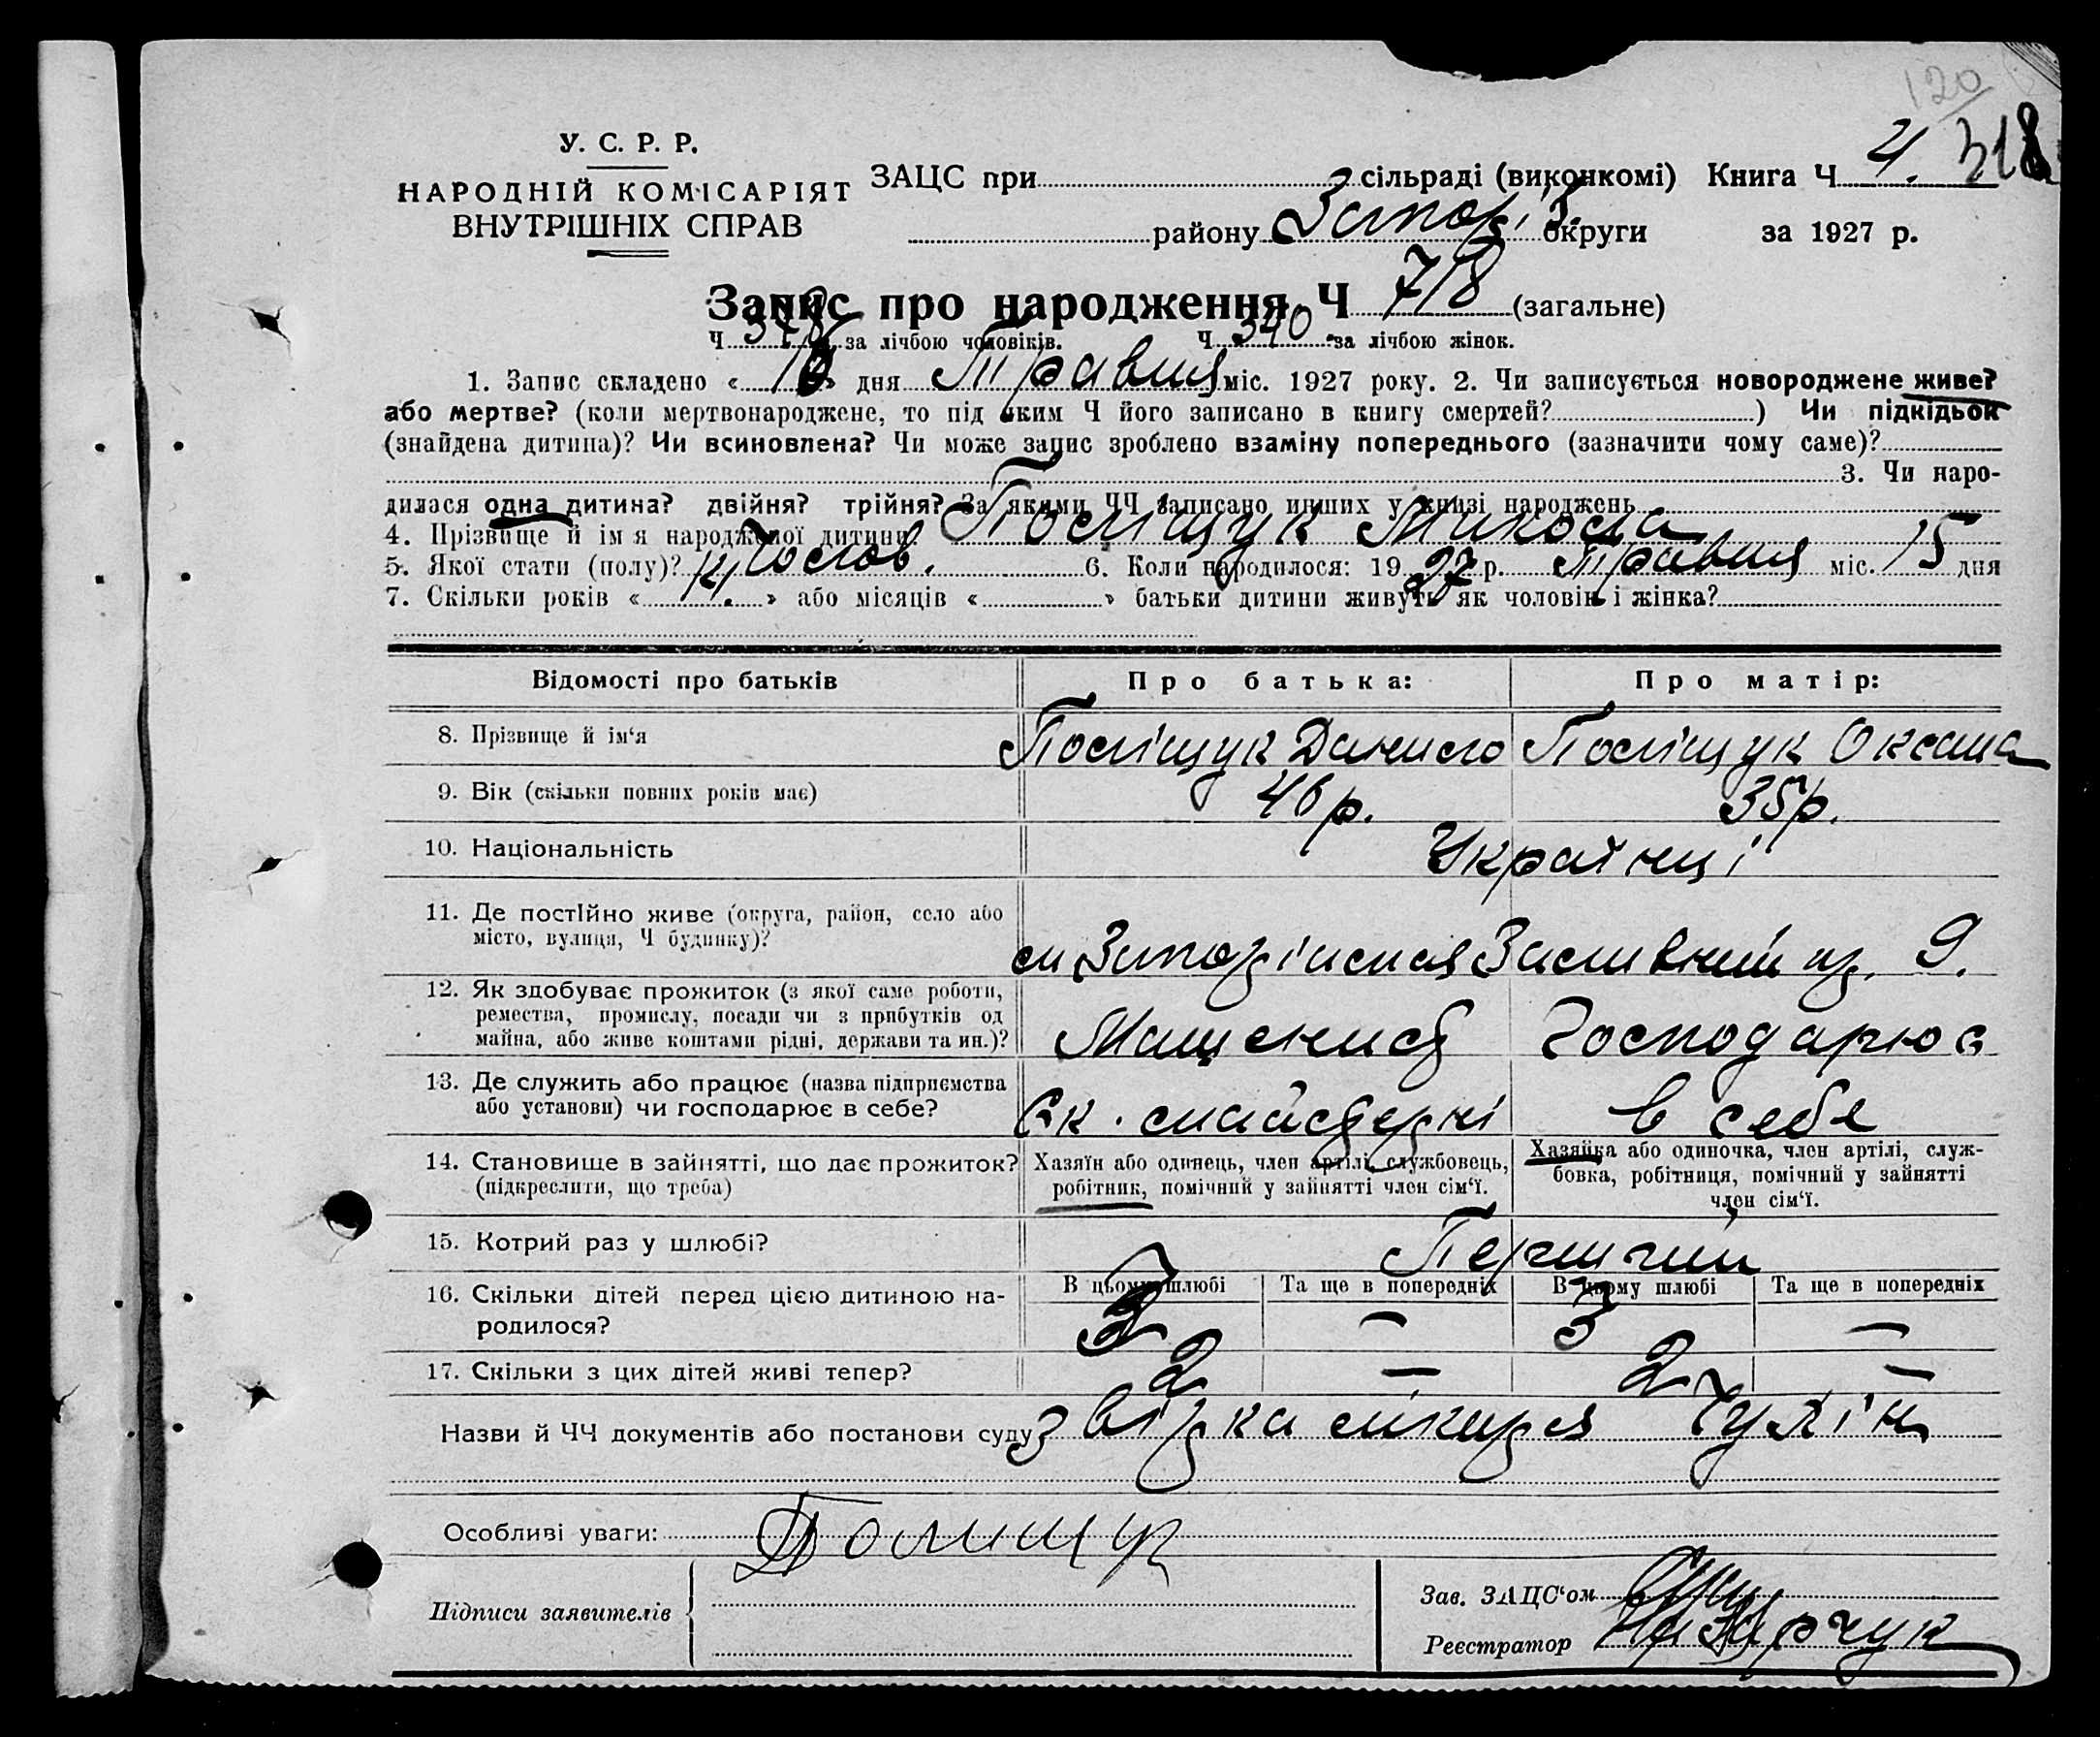 120
318
У. С. Р. Р.
НАРОДНІЙ КОМІСАРІЯТ
ВНУТРІШНІХ СПРАВ
ЗАЦС при сільраді (виконкомі) Книга Ч 4.
району Запоріз. округи за 1927 р.
Запис про народження Ч 718 (загальне)
Ч 378 за лічбою чоловіків. Ч 340 за лічбою жінок.
1. Запис складено « 16 » дня Травня міс. 1927 року. 2. Чи записується новороджене живе?
або мертве? (коли мертвонароджене, то під яким Ч його записано в книгу смертей? ) Чи підкідьок
(знайдена дитина)? Чи всиновлена? Чи може запис зроблено взаміну попереднього (зазначити чому саме)?
3. Чи наро-
дилася одна дитина? двійня? трійня? За якими ЧЧ записано инших у книзі народжень
4. Прізвище й ім я народженої дитини Поліщук Микола
5. Якої стати (полу)? Чолов. 6. Коли народилося: 19 27 р. Травня міс. 15 дня
7. Скільки років « 12. » або місяців « » батьки дитини живуть як чоловік і жінка?
Відомості про батьків Про батька: Про матір:
8. Прізвище й ім‘я Поліщук Данило Поліщук Оксана
9. Вік (скільки повних років має) 46 р. 35 р.
10. Національність Українці
11. Де постійно живе (округа, район, село або
місто, вулиця, Ч будинку)? 9.
12. Як здобуває прожиток (з якої саме роботи,
ремества, промислу, посади чи з прибутків од
майна, або живе коштами рідні, держави та ин.)? Машиніст Господарює
13. Де служить або працює (назва підприємства
або установи) чи господарює в себе? Ек. майстерні в себе
14. Становище в зайнятті, що дає прожиток? Хазяїн або одинець, член артілі, службовець, Хазяйка або одиночка, член артілі, служ-
(підкреслити, що треба) робітник, помічний у зайнятті член сім‘ї. бовка, робітниця, помічний у зайнятті
член сім‘ї.
15. Котрий раз у шлюбі? Перший
16. Скільки дітей перед цією дитиною на- В цьому шлюбі Та ще в попередніх В цьому шлюбі Та ще в попередніх
родилося? 3 — 3 —
17. Скільки з цих дітей живі тепер? 2 — 2 —
Назви й ЧЧ документів або постанови суду
Особливі уваги:
Полищук
Підписи заявителів
Зав. ЗАЦС‘ом
Реєстратор